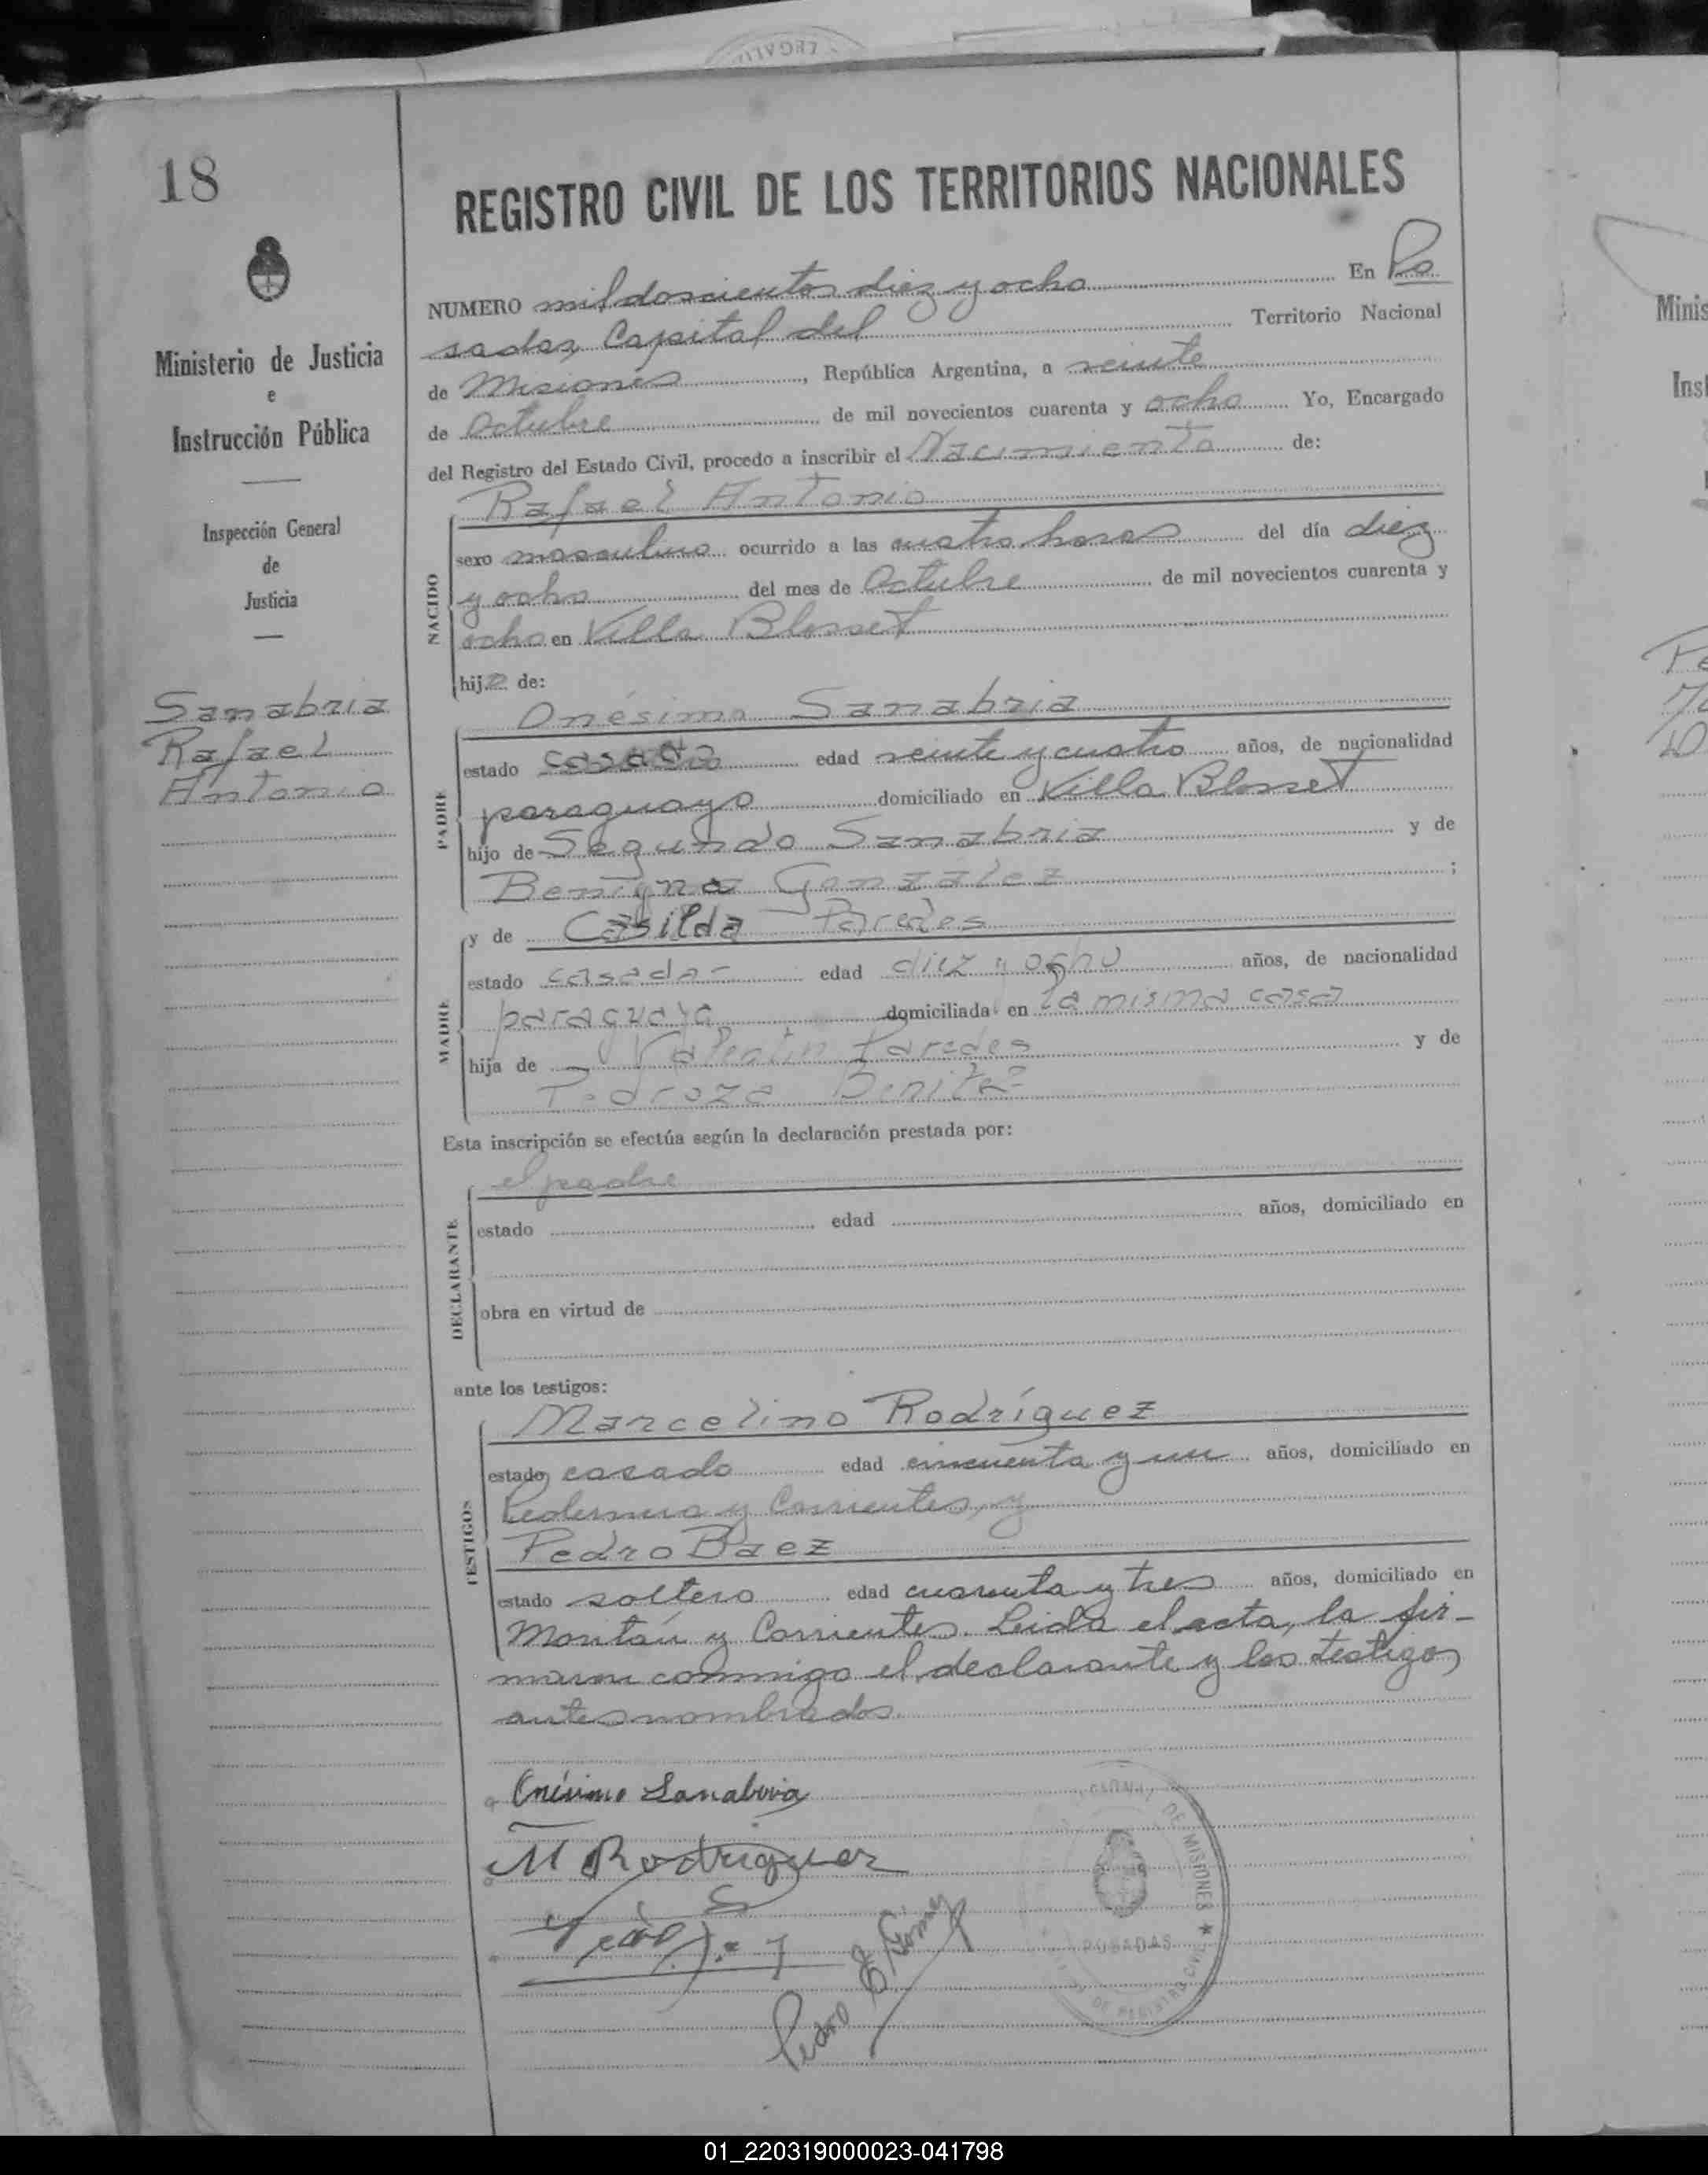 18
Ministerio de Justicia
e
Instrucción Pública
Inspección General
de
Justicia
Sanabria
Rafael
Antonio
REGISTRO CIVIL DE LOS TERRITORIOS NACIONALES
NUMERO mil doscientos diez y ocho En Po
sadas, Capital del Territorio Nacional
de Misiones, República Argentina, a veinte
de Octubre de mil novecientos cuarenta y ocho Yo, Encargado
del Registro del Estado Civil, procedo a inscribir el Nacimiento de:
Rafael Antonio
NACIDO
sexo masculino ocurrido a las cuatro horas del día diez
y ocho del mes de Octubre de mil novecientos cuarenta y
ocho en Villa Blosset
hijo de:
Onésimo Sanabria
PADRE
estado casado edad veinte y cuatro años, de nacionalidad
paraguayo domiciliado en Villa Blosset
hijo de Segundo Sanabria y de
Benigna Gonzalez ;
y de Casilda Paredes
MADRE
estado casada edad diez y ocho años, de nacionalidad
paraguaya domiciliada en la misma casa
hija de Valentin Paredes y de
Pedroza Benitez
Esta inscripción se efectúa según la declaración prestada por:
el padre
DECLARANTE
estado edad años, domiciliado en
obra en virtud de
ante los testigos:
Marcelino Rodríguez
TESTIGOS
estado casado edad cincuenta y un años, domiciliado en
y Corrientes, y
Pedro Baez
estado soltero edad cuarenta y tres años, domiciliado en
y Corrientes. Leida el acta, la fir-
maron conmigo el declarante y los testigos
antes nombrados.
Onésimo Sanabria
M Rodriguez
Pedro E Gómez
DE MISIONES ★
POSADAS
DE REGISTRO CIVIL
Minis
Inst
01_220319000023-041798